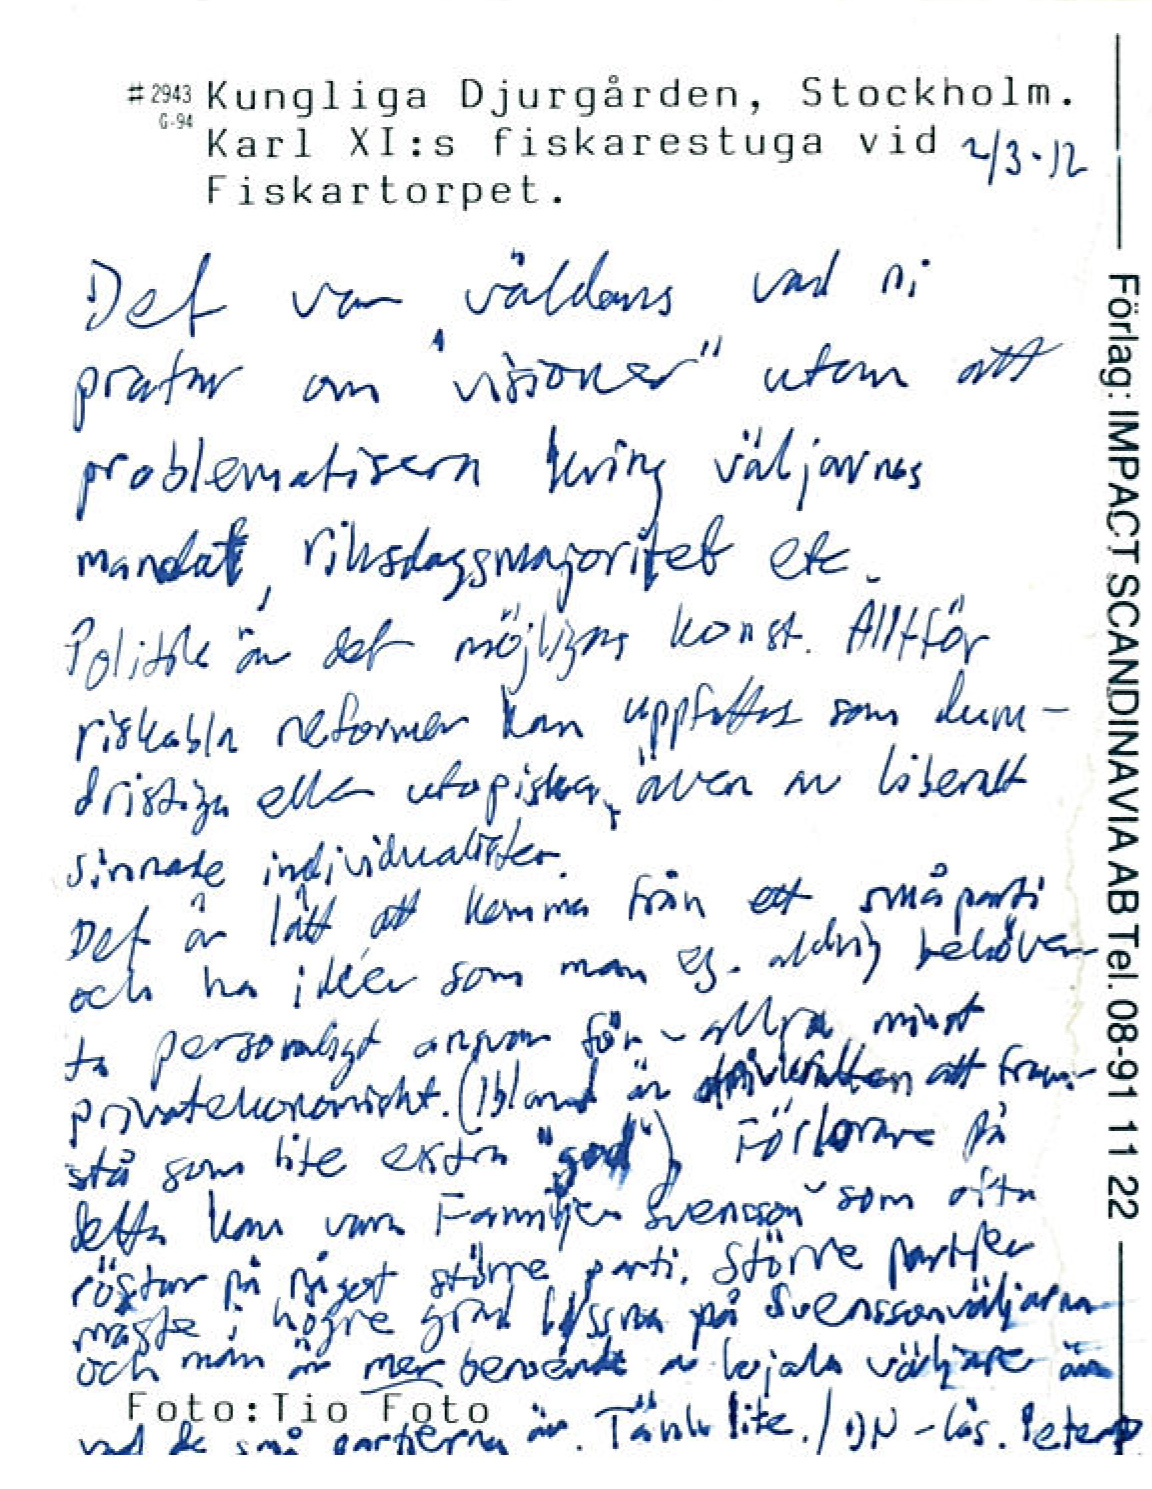 #2943 Kungliga Djurgården, Stockholm.
G-94 Karl XI:s fiskarestuga vid 2/3-12
Fiskartorpet.
Det var väldans vad ni
pratar om "visioner" utan att
problematisera kring väljarnas
mandat, riksdagsmajoritet etc.
Politik är det möjligas konst. Alltför
riskabla reformer kan uppfattas som dum-
dristiga eller utopiska, även av liberalt
sinnade individualister.
Det är lätt att komma från ett småparti
och ha idéer som man ej. aldrig behöver
ta personligt ansvar för - allra minst
privatekonomiskt. (Ibland är drivkraften att fram-
stå som lite extra "god") Förlorare på
detta kan vara Familjen Svensson som ofta
röstar på något större parti. Större partier
måste i högre grad lyssna på Svenssonväljarna
och man är mer beroende av lojala väljare än
Foto: Tio Foto
vad de små partierna är. Tänk lite. / DN-läs. Peter P
Förlag: IMPACT SCANDINAVIA AB Tel. 08-91 11 22